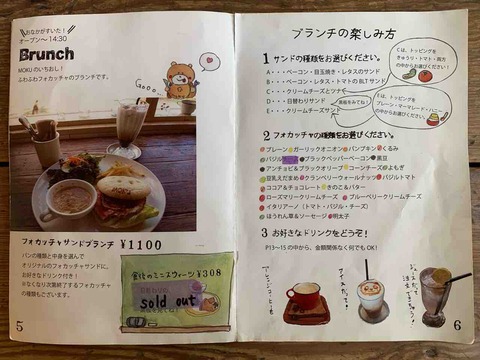 おなかがすいた!
オープン〜14:30
Brunch
MOKUのいちおし!
ふわふわフォカッチャのブランチです。
Guoo...
フォカッチャサンドブランチ ¥1100
パンの種類と中身を選んで
オリジナルのフォカッチャサンドに。
お好きなドリンク付き!
※なくなり次第終了するフォカッチャ
の種類もございます。
食后のミニスウィーツ ¥308
sold out
5
ブランチの楽しみ方
1 サンドの種類をお選びください。
A・・・ベーコン・目玉焼き・レタスのサンド
B・・・ベーコン・レタス・トマトのBLTサンド
C・・・クリームチーズとツナ
D・・・日替わりサンド
黒板をみてね!
E・・・クリームチーズサンド
Cは、トッピングを
きゅうり・トマト・両方
の中からお選び下さい!
Eは、トッピングを
プレーン・マーマレード・ハニー
の中からお選び下さい!
2 フォカッチャの種類をお選びください。
プレーン ガーリックオニオン パンプキン くるみ
バジル ブラックペッパーベーコン 黒豆
アンチョビ&ブラックオリーブ コーンチーズ よもぎ
豆乳えだまめ クランベリーウォールナッツ バジルトマト
ココア&チョコレート きのこ&バター
ローズマリークリームチーズ ブルーベリークリームチーズ
イタリアーノ(トマト・バジル・チーズ)
ほうれん草&ソーセージ 明太子
3 お好きなドリンクをどうぞ!
P13〜15の中から、金額関係なく何でもOK!
アイスだって!
ジュースだって
注文できちゃう!
6